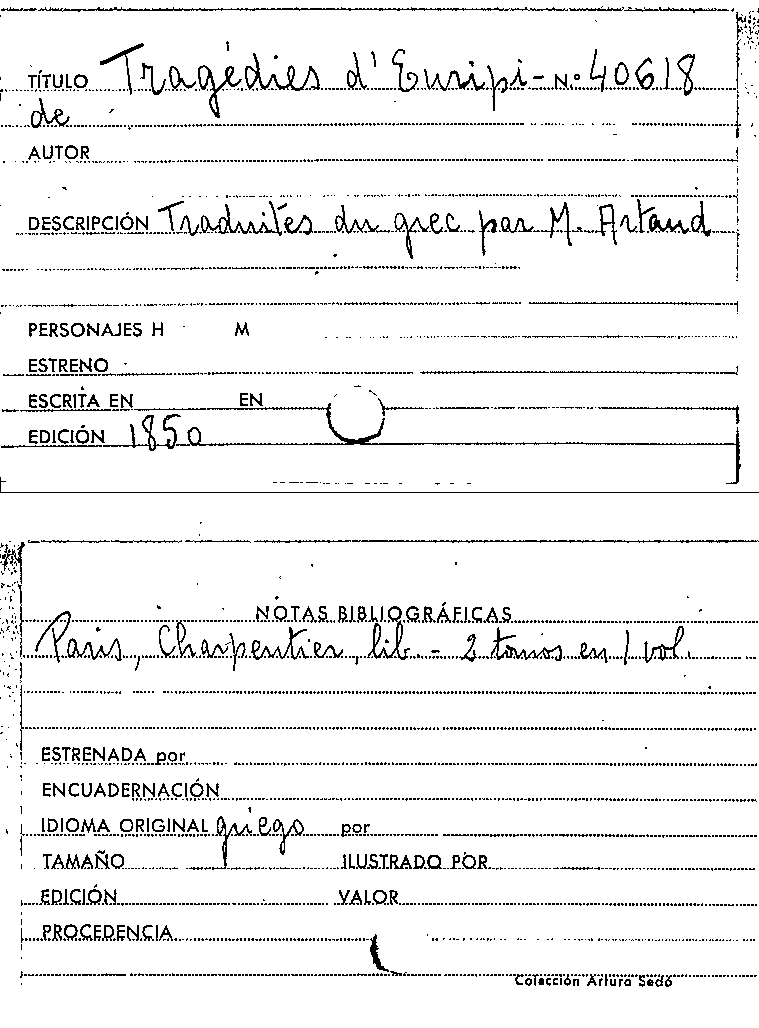 TÍTULO Tragédies d'Euripi- N.º 40618
de
AUTOR
DESCRIPCIÓN Traduites du grec par M. Artaud
PERSONAJES H M
ESTRENO
ESCRITA EN EN
EDICIÓN 1850
NOTAS BIBLIOGRÁFICAS
Paris, Charpentier, lib. - 2 tomos en 1 vol.
ESTRENADA por
ENCUADERNACIÓN
IDIOMA ORIGINAL griego por
TAMAÑO ILUSTRADO POR
EDICIÓN VALOR
PROCEDENCIA
Colección Arturo Sedó